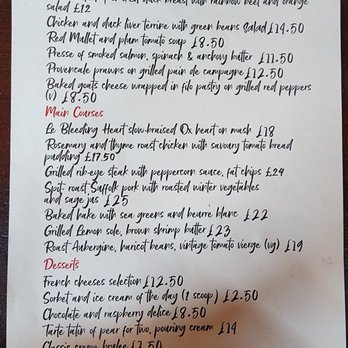 breast with rainbow beet and orange
salad £12
Chicken and duck liver terrine with green beans Salad £14.50
Red Mullet and plum tomato soup £8.50
Presse of smoked salmon, spinach & anchovy butter £11.50
Provencale prawns on grilled pain de campagne £12.50
Baked goats cheese wrapped in filo pastry on grilled red peppers
(v) £8.50
Main Courses
Le Bleeding Heart slow-braised Ox heart on mash £18
Rosemary and thyme roast chicken with savoury tomato bread
pudding £17.50
Grilled rib-eye steak with peppercorn sauce, fat chips £29
Spit roast Suffolk pork with roasted winter vegetables
and sage jus £25
Baked hake with sea greens and beurre blanc £22
Grilled Lemon sole, brown shrimp butter £23
Roast Aubergine, haricot beans, vintage tomato vierge (vg) £19
Desserts
French cheeses selection £12.50
Sorbet and ice cream of the day (1 scoop) £2.50
Chocolate and raspberry delice £8.50
Tarte tatin of pear for two, pouring cream £14
£7.50